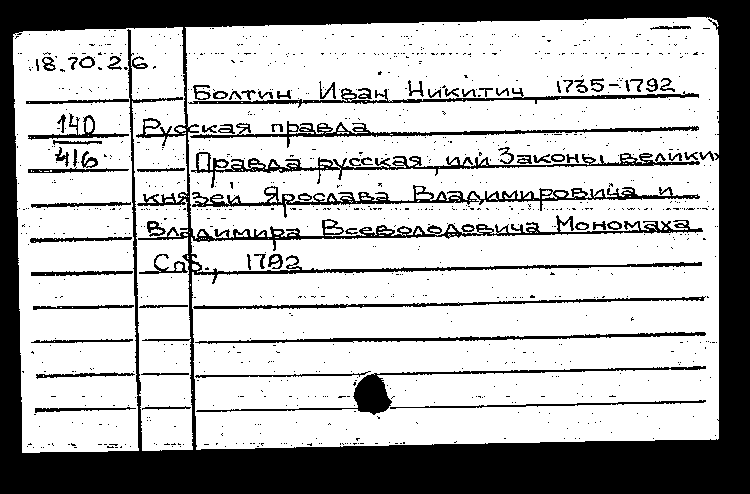 18.70.2.6.
Болтин, Иван Никитич, 1735-1792
140 Русская правда
416 Правда русская, или Законы великих
князей Ярослава Владимировича и
Владимира Всеволодовича Мономаха
СпБ., 1792.